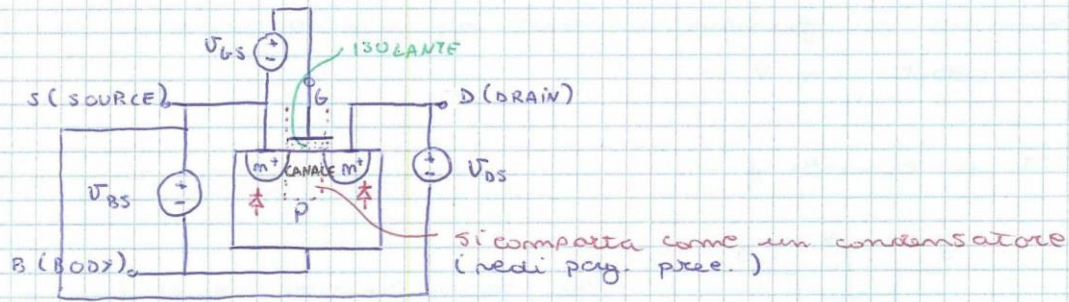 VGS + -
ISOLANTE
S (SOURCE)
G
D (DRAIN)
n+ CANALE n+
+ - VDS
VBS + -
P
si comporta come un condensatore
B (BODY)
(vedi pag. prec.)